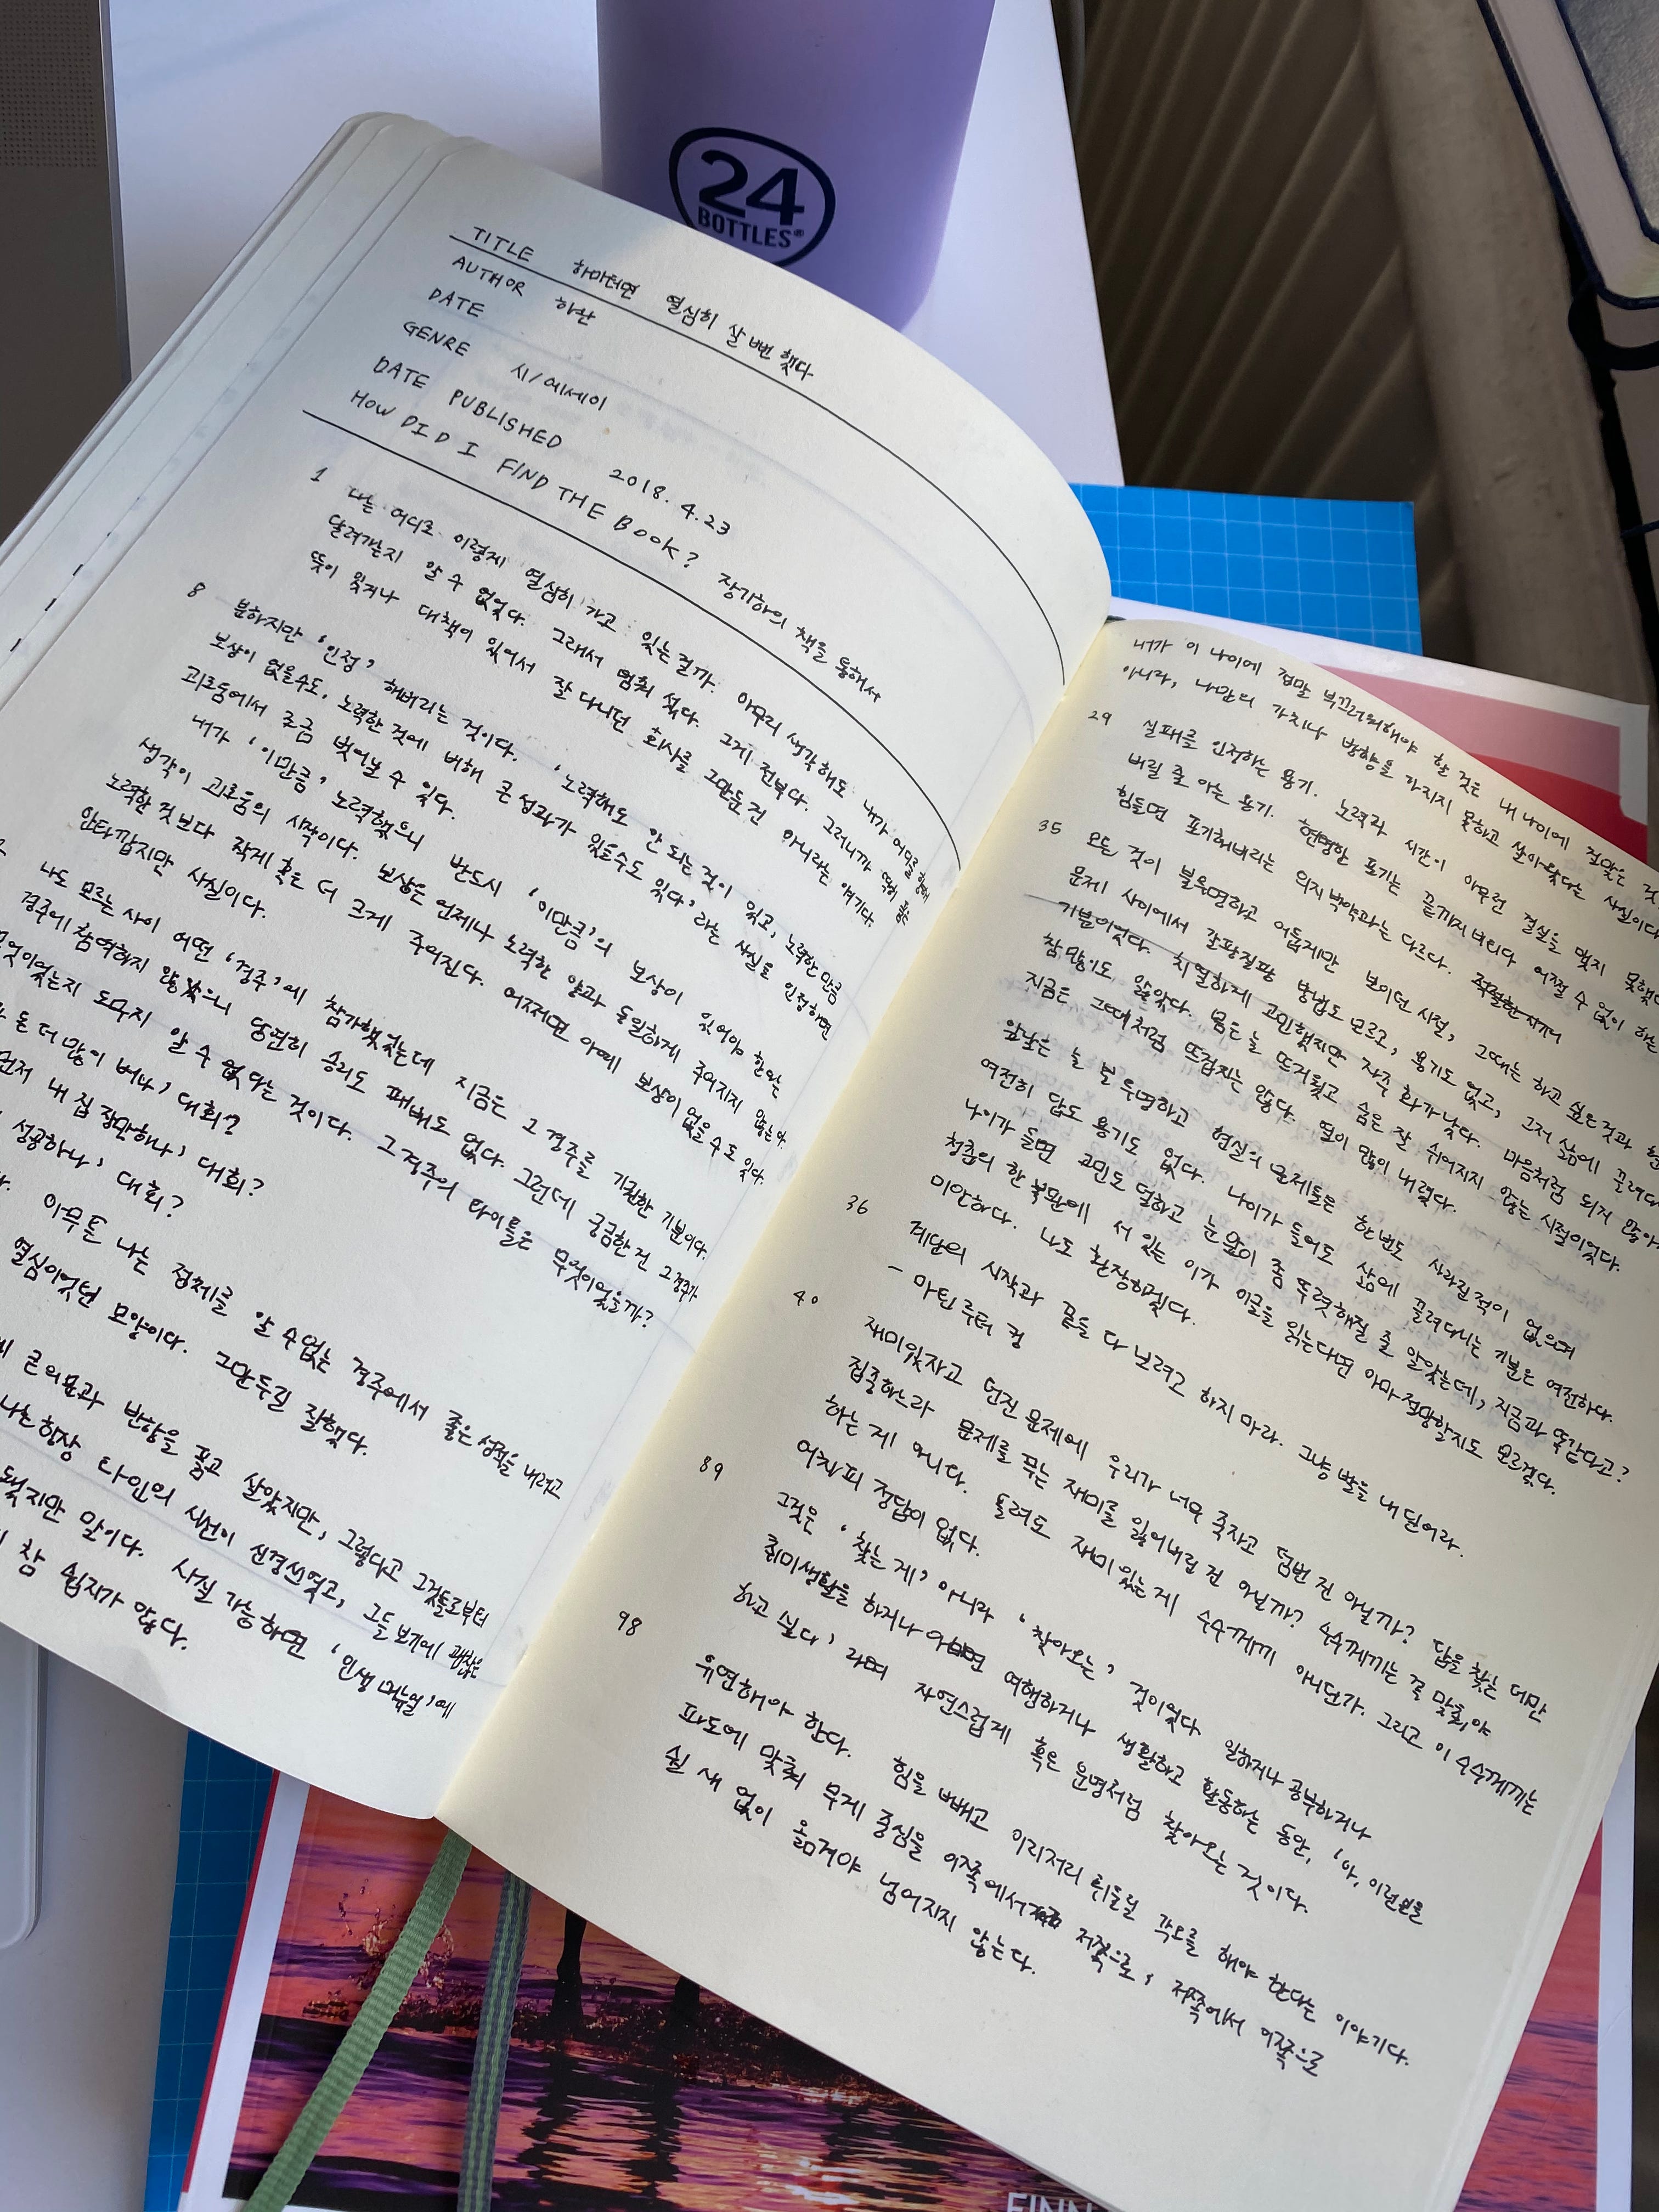 24
BOTTLES®
TITLE 하마터면 열심히 살 뻔 했다
AUTHOR 하완
DATE
GENRE 시/에세이
DATE PUBLISHED 2018. 4. 23
HOW DID I FIND THE BOOK? 장기하의 책을 통해서
1 나는 어디로 이렇게 열심히 가고 있는 걸까. 아무리 생각해도 내가 어디를 향해
달려가는지 알 수 없었다. 그래서 멈춰 섰다. 그게 전부다. 그러니까 딱히 좋은
뜻이 있거나 대책이 있어서 잘 다니던 회사를 그만둔 건 아니라는 얘기다.
8 분하지만 '인정' 해버리는 것이다. '노력해도 안 되는 것이 있고, 노력한 만큼
보상이 없을수도, 노력한 것에 비해 큰 성과가 있을수도 있다'라는 사실을 인정하면
괴로움에서 조금 벗어날 수 있다.
내가 '이만큼' 노력했으니 반드시 '이만큼'의 보상이 있어야 한다는
생각이 괴로움의 시작이다. 보상은 언제나 노력한 양과 동일하게 주어지지 않는다.
노력한 것보다 작게 혹은 더 크게 주어진다. 어쩌면 아예 보상이 없을 수도 있다.
안타깝지만 사실이다.
나도 모르는 사이 어떤 '경주'에 참가했었는데 지금은 그 경주를 기권한 기분이다.
경주에 참여하지 않았으니 당연히 승리도 패배도 없다. 그런데 궁금한 건 그 경주가
무엇이었는지 도무지 알 수 없다는 것이다. 그 경주의 타이틀은 무엇이었을까?
돈 더 많이 버나' 대회?
먼저 내 집 장만하나' 대회?
성공하나' 대회?
아무튼 나는 정체를 알 수 없는 경주에서 좋은 성적을 내려고
열심이었던 모양이다. 그만두길 잘했다.
큰 의문과 반항을 품고 살았지만, 그렇다고 그것들로부터
나는 항상 타인의 시선이 신경쓰였고, 그들 보기에 괜찮은
됐지만 말이다. 사실 가능하면 '인생 매뉴얼'에
참 쉽지가 않다.
내가 이 나이에 정말 부끄러워해야 할 것은 내 나이에 걸맞은 것
아니라, 나만의 가치나 방향을 가지지 못하고 살아왔다는 사실이다
29 실패를 인정하는 용기. 노력과 시간이 아무런 결실을 맺지 못했
버릴 줄 아는 용기. 현명한 포기는 끝까지 버티다 어쩔 수 없이 하는
힘들면 포기해버리는 의지박약과는 다르다. 적절한 시기에
35 모든 것이 불투명하고 어둡게만 보이던 시절, 그때는 하고 싶은 것과
문제 사이에서 갈팡질팡 방법도 모르고, 용기도 없고, 그저 삶에 끌려다
기분이었다. 치열하게 고민했지만 자주 화가 났다. 마음처럼 되지 않아
참 많이도 앓았다. 몸은 늘 뜨거웠고 숨은 잘 쉬어지지 않는 시절이었다.
지금은 그때처럼 뜨겁지는 않다. 열이 많이 내렸다.
앞날은 늘 불투명하고 현실의 문제들은 한번도 사라진 적이 없으며
여전히 답도 용기도 없다. 나이가 들어도 삶에 끌려다니는 기분은 여전하다.
나이가 들면 고민도 덜하고 눈앞이 좀 뚜렷해질 줄 알았는데, 지금과 똑같다고?
청춘의 한복판에 서 있는 이가 이글을 읽는다면 아마 절망할지도 모르겠다.
미안하다. 나도 환장하겠다.
36 계단의 시작과 끝을 다 보려고 하지 마라. 그냥 발을 내 딛어라.
- 마틴 루터 킹
40 재미있자고 던진 문제에 우리가 너무 죽자고 덤빈 건 아닐까? 답을 찾는 데만
집중하느라 문제를 푸는 재미를 잃어버린 건 아닐까? 수수께끼는 꼭 맞춰야
하는 게 아니다. 틀려도 재미있는 게 수수께끼 아니던가. 그리고 이 수수께끼는
어차피 정답이 없다.
89 그것은 '찾는 게' 아니라 '찾아오는' 것이었다 일하거나 공부하거나
취미생활을 하거나 여행하거나 생활하고 활동하는 동안, '아, 이런 일을
하고 싶다' 라며 자연스럽게 혹은 운명처럼 찾아오는 것이다.
98 유연해야 한다. 힘을 빼고 이리저리 휘둘릴 각오를 해야 한다는 이야기다.
파도에 맞춰 무게 중심을 이쪽에서 저쪽으로, 저쪽에서 이쪽으로
쉴 새 없이 옮겨야 넘어지지 않는다.